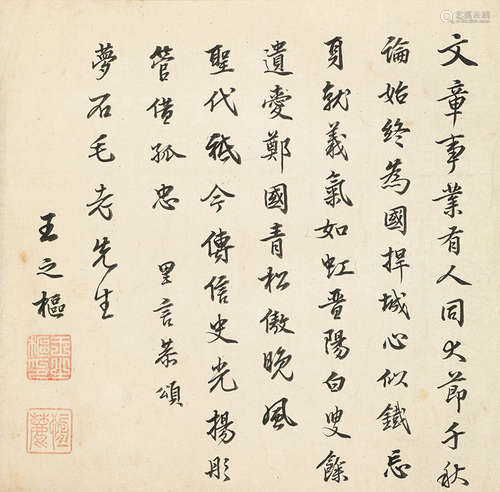 文章事業有人同大節千秋
論始終為國捍城心似鐵忘
身就義氣如虹晉陽白叟餘
遺愛鄭國青松傲晚風
聖代祗今傳信史光揚彤
管借孤忠 里言恭頌
夢石毛老先生
王之樞
王之樞印